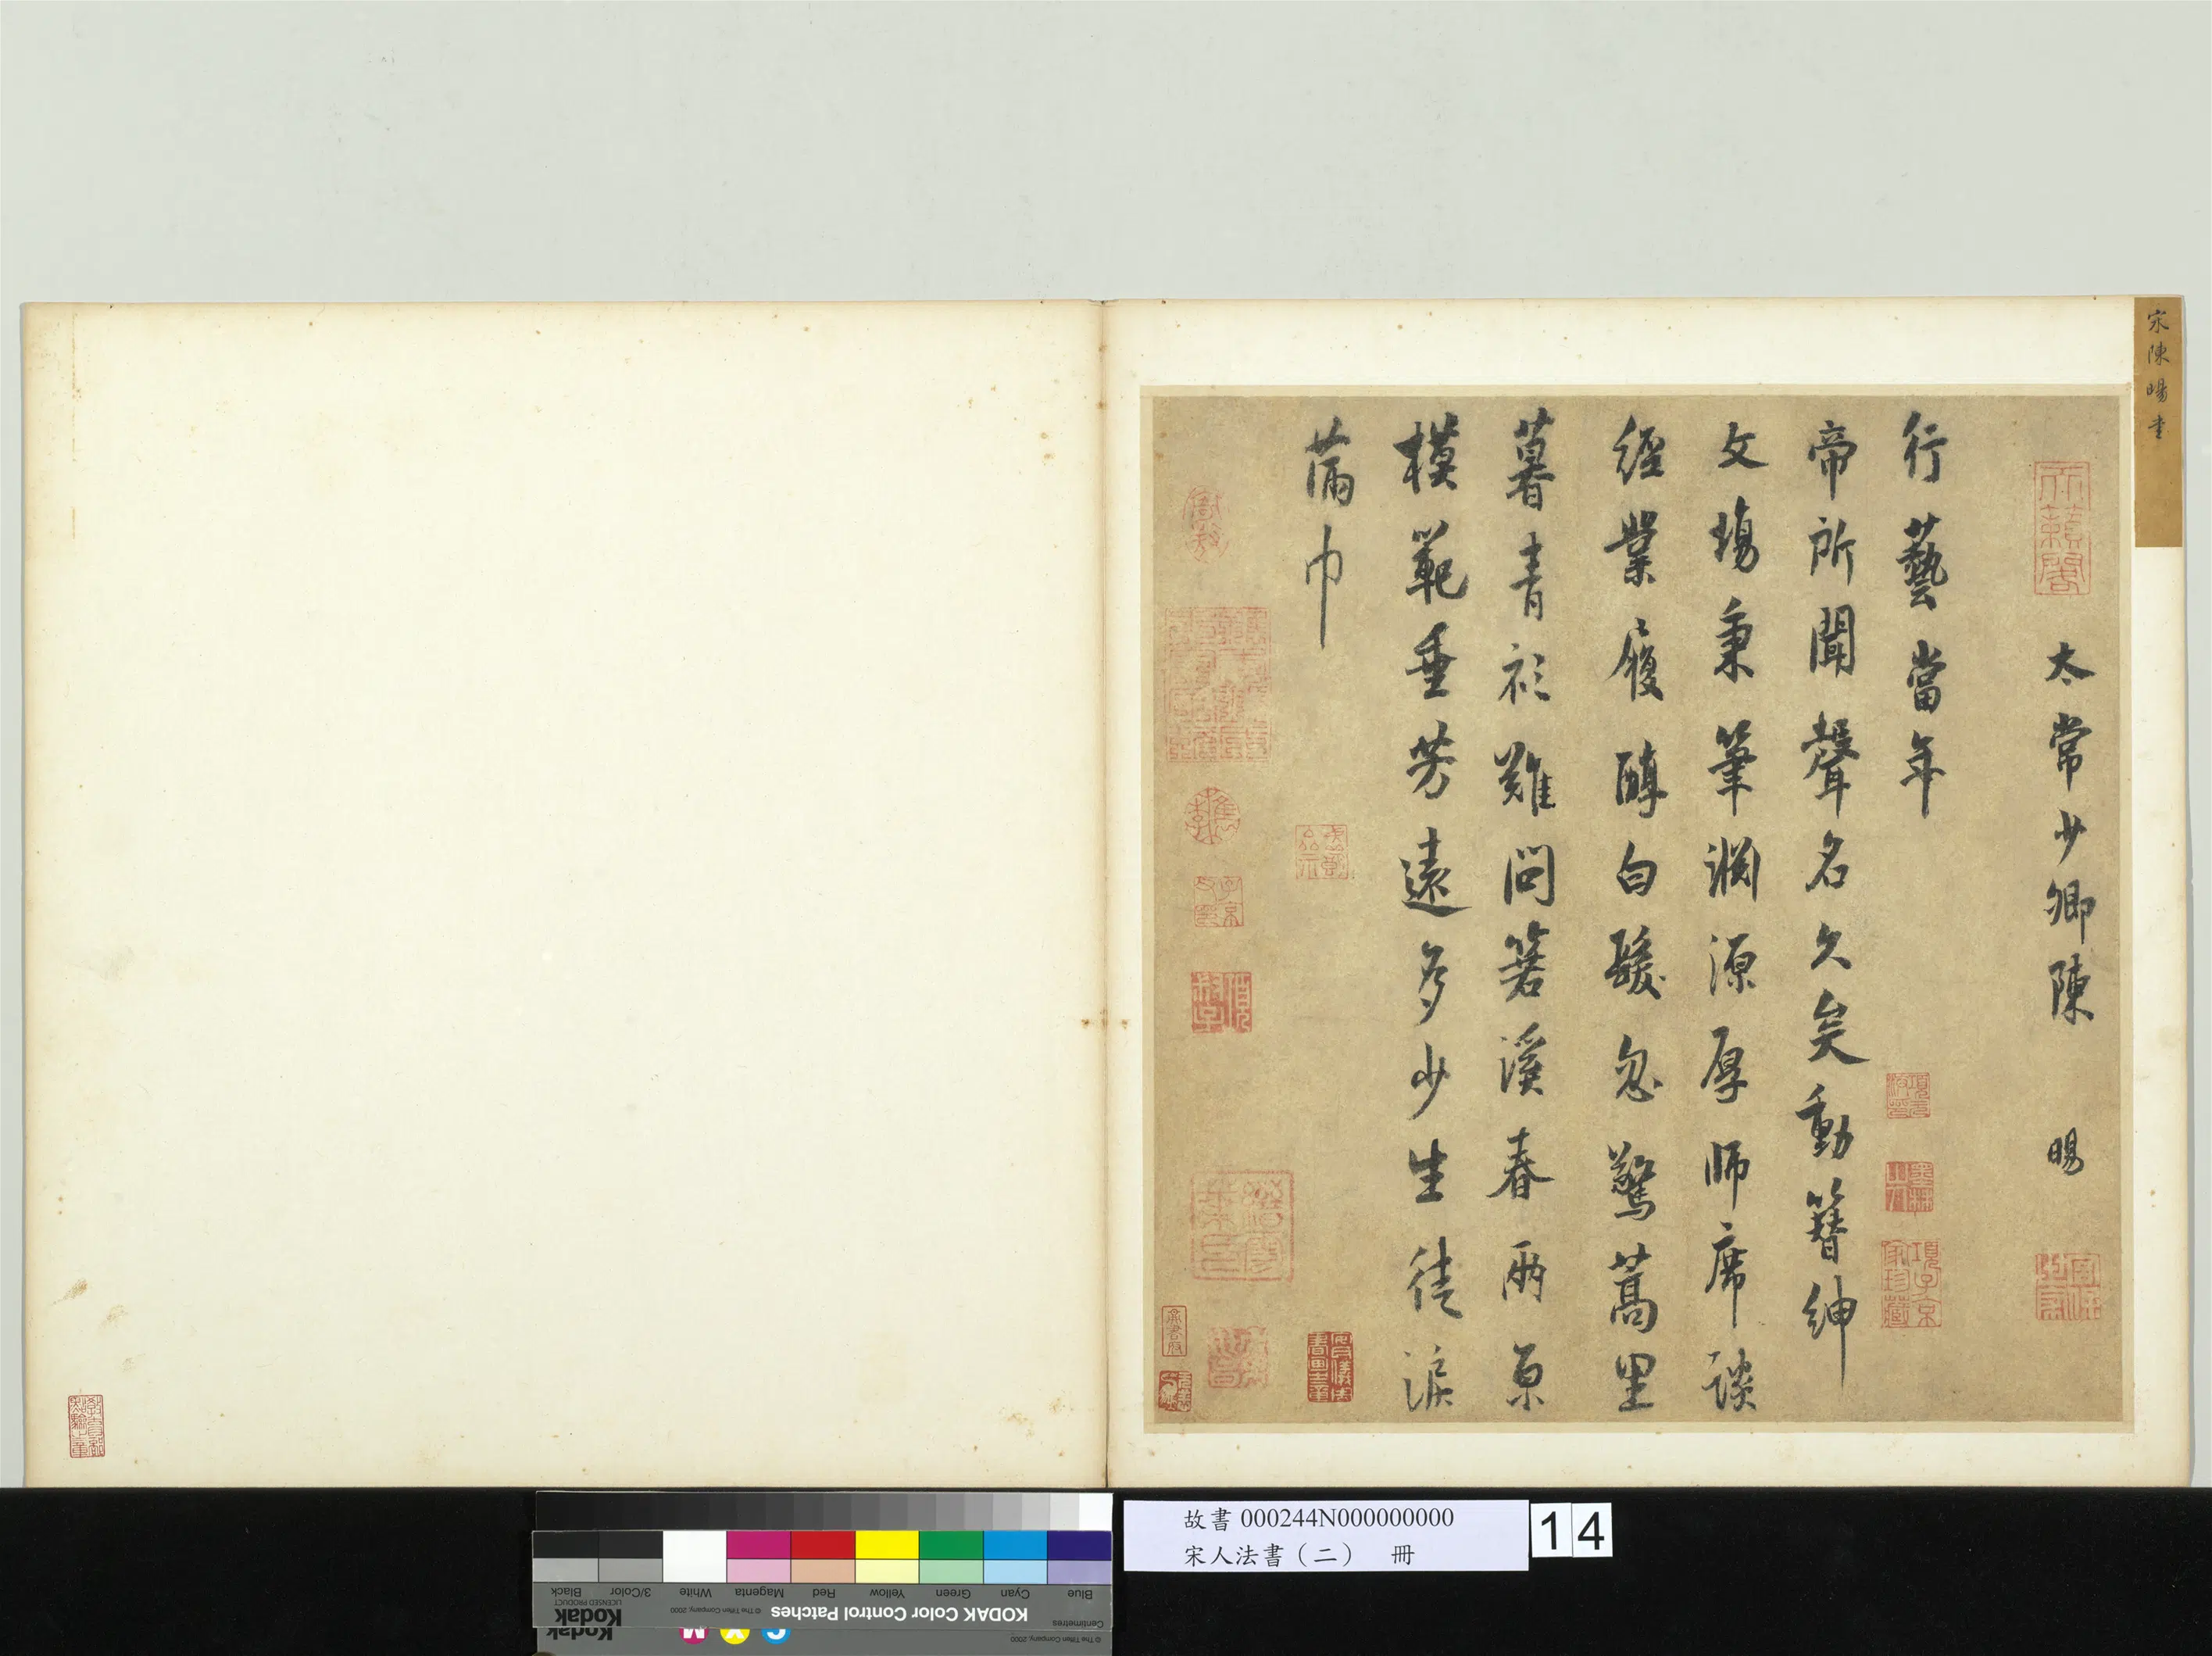 宋陳暘書
太常少卿陳 暘
行藝當年
帝所聞聲名久矣動簪紳
文場秉筆淵源厚師席談
經業履醇白髮忽驚蒿里
暮青衫難問箬溪春兩京
模範垂芳遠多少生徒淚
滿巾
天籟閣
項子京
家珍藏
子京
故書 000244N000000000
宋人法書（二） 冊
14
KODAK Color Control Patches
© The Tiffen Company, 2000
Kodak
LICENSED PRODUCT
Centimetres
Blue
Cyan
Green
Yellow
Red
Magenta
White
3/Color
Black
© The Tiffen Company, 2000
Kodak
C
Y
M